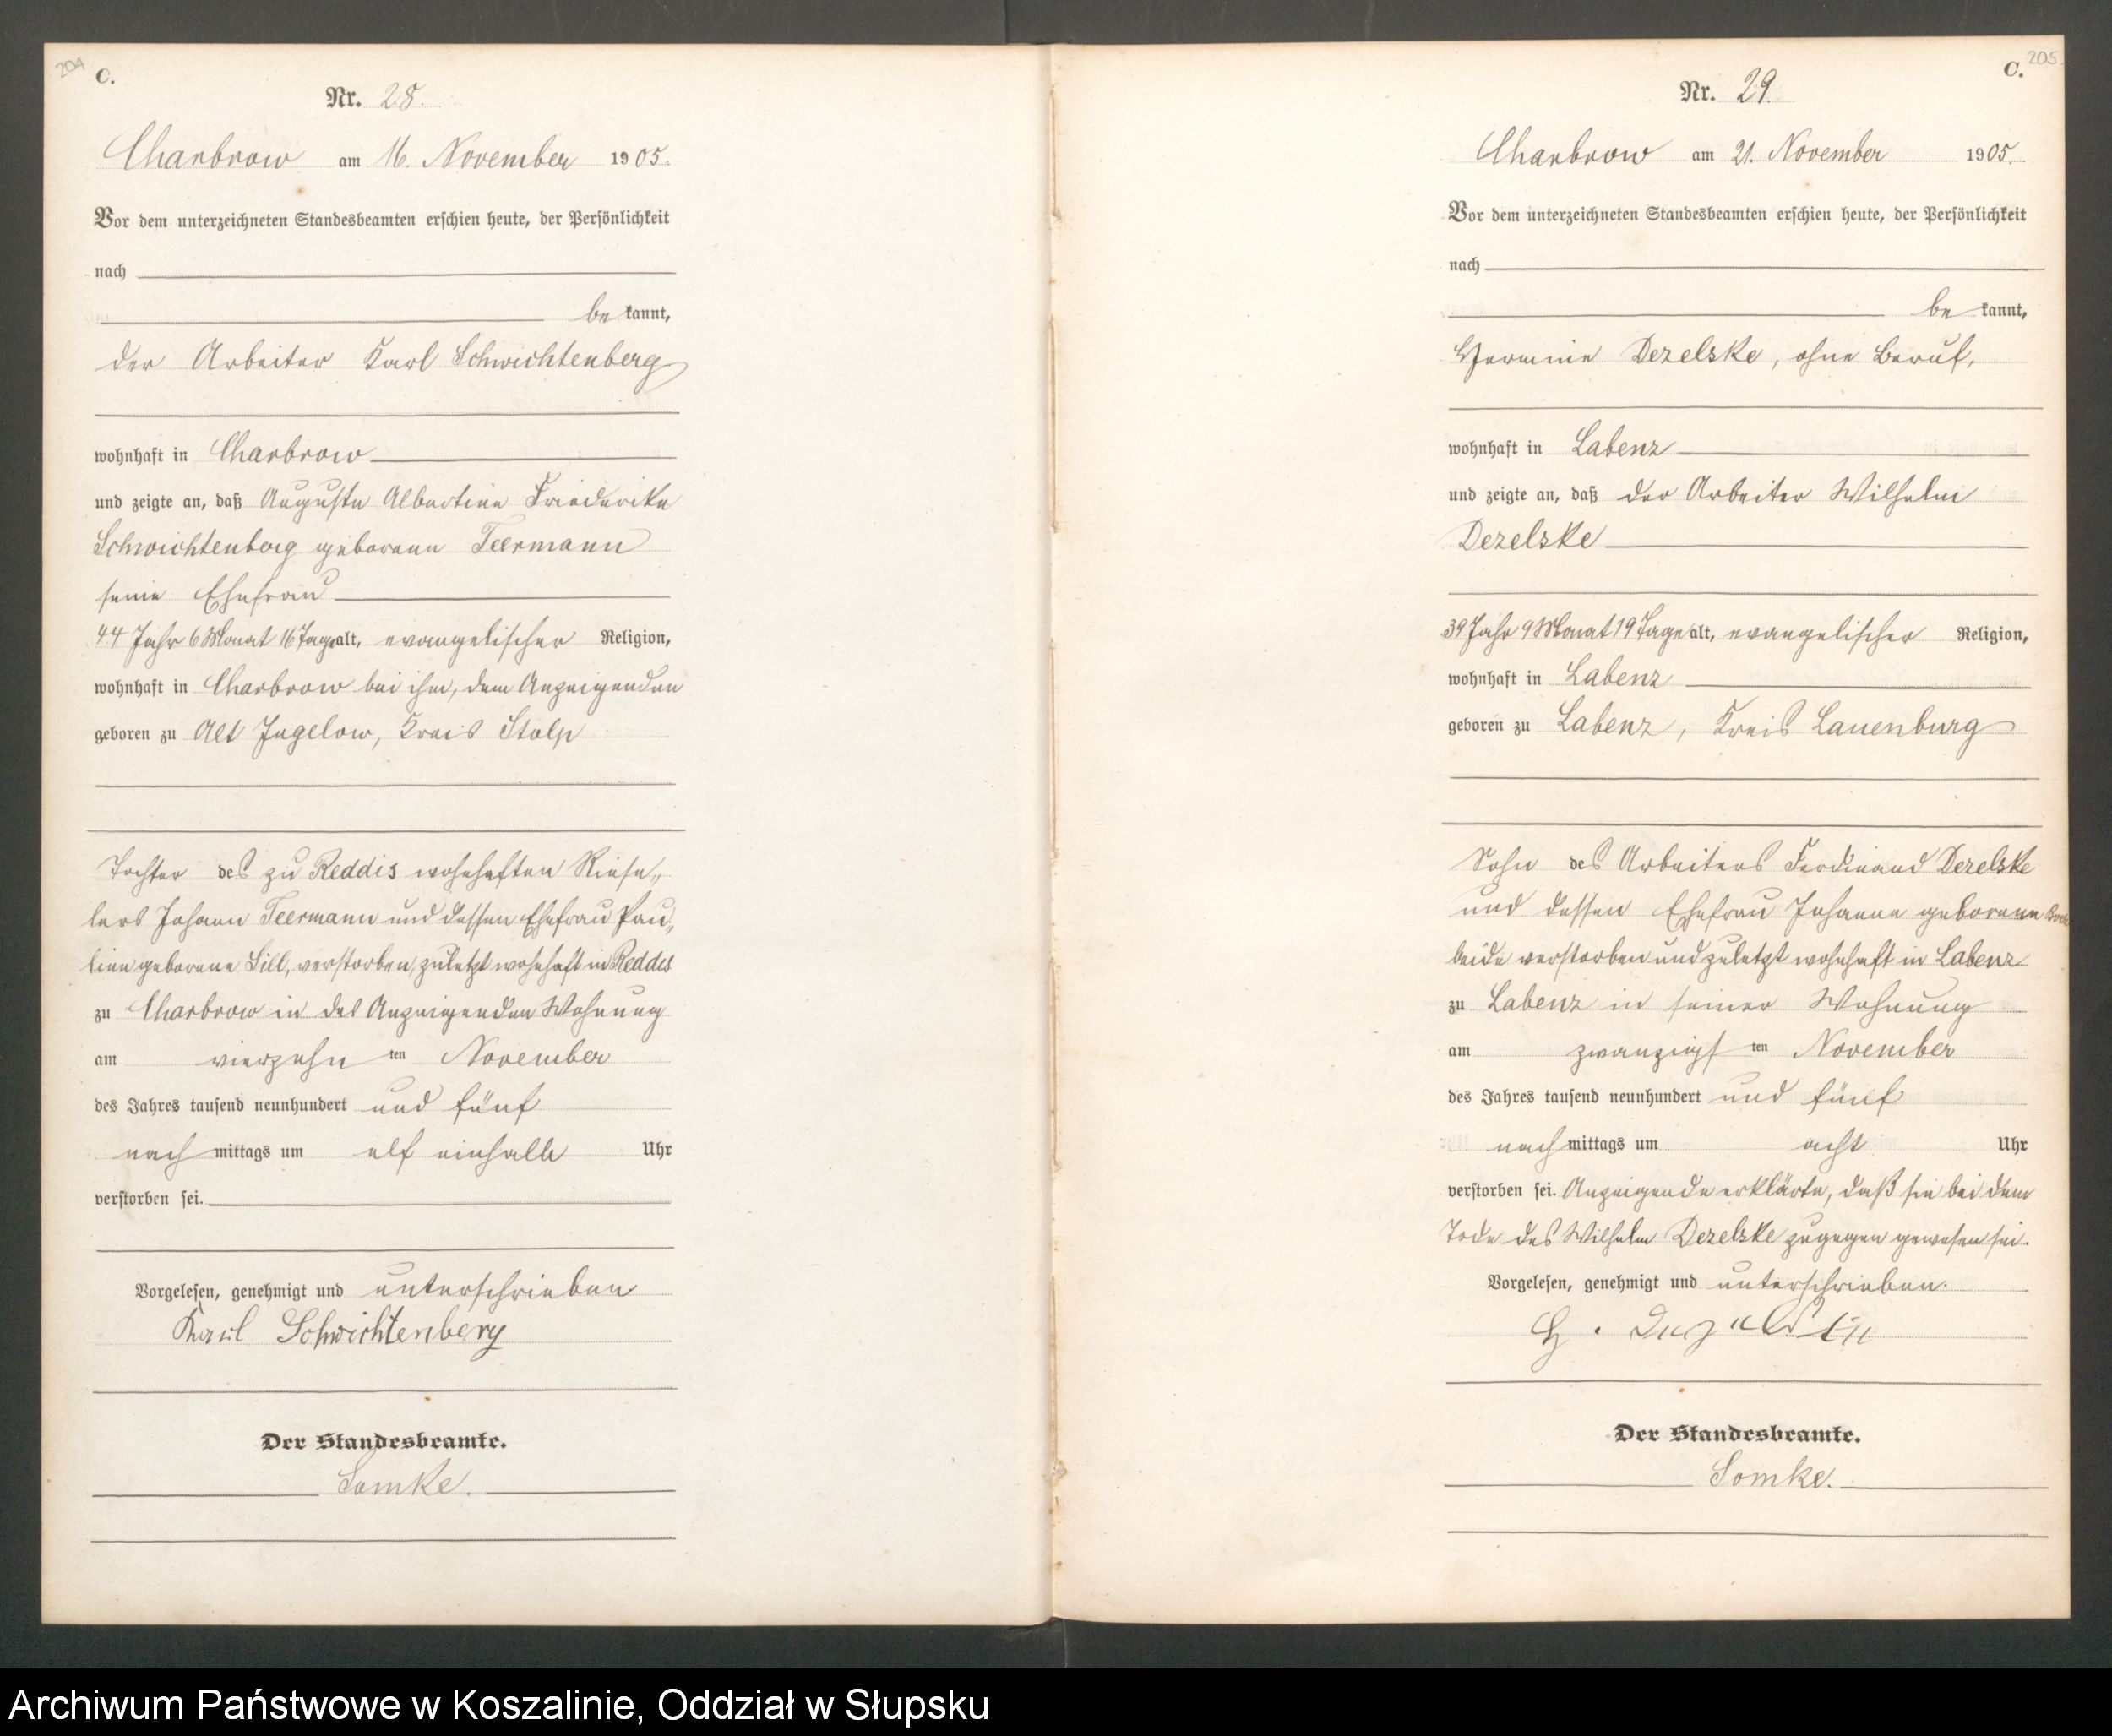 204
C.
Nr. 28.
Charbrow am 16. November 1905.
Vor dem unterzeichneten Standesbeamten erschien heute, der Persönlichkeit
nach
be kannt,
der Arbeiter Karl Schwichtenberg
wohnhaft in Charbrow
und zeigte an, daß Auguste Albertine Friederike
Schwichtenberg geborene Teermann
seine Ehefrau
44 Jahr 6 Monat 16 Tage alt, evangelischer Religion,
wohnhaft in Charbrow bei ihm, dem Anzeigenden
geboren zu Alt Jugelow, Kreis Stolp
Tochter des zu Reddis wohnhaften
Johann Teermann und dessen Ehefrau Pau„
line geborene Sill, verstorben, zuletzt wohnhaft in Reddis
zu Charbrow in des Anzeigenden Wohnung
am vierzehn ten November
des Jahres tausend neunhundert und fünf
nach mittags um elf einhalb Uhr
verstorben sei.
Vorgelesen, genehmigt und unterschrieben
Karl Schwichtenberg
Der Standesbeamte.
Lomke.
205.
C.
Nr. 29.
Charbrow am 21. November 1905.
Vor dem unterzeichneten Standesbeamten erschien heute, der Persönlichkeit
nach
be kannt,
Hermine Dezelske, ohne Beruf,
wohnhaft in Labenz
und zeigte an, daß der Arbeiter Wilhelm
Dezelske
39 Jahr 9 Monat 19 Tage alt, evangelischer Religion,
wohnhaft in Labenz
geboren zu Labenz, Kreis Lauenburg
Sohn des Arbeiters Ferdinand Dezelske
und dessen Ehefrau Johanne geborene
beide verstorben und zuletzt wohnhaft in Labenz
zu Labenz in seiner Wohnung
am zwanzigst ten November
des Jahres tausend neunhundert und fünf
nach mittags um acht Uhr
verstorben sei. Anzeigende erklärte, daß sie bei dem
Tode des Wilhelm Dezelske zugegen gewesen sei.
Vorgelesen, genehmigt und unterschrieben.
H.
Der Standesbeamte.
Lomke.
Archiwum Państwowe w Koszalinie, Oddział w Słupsku